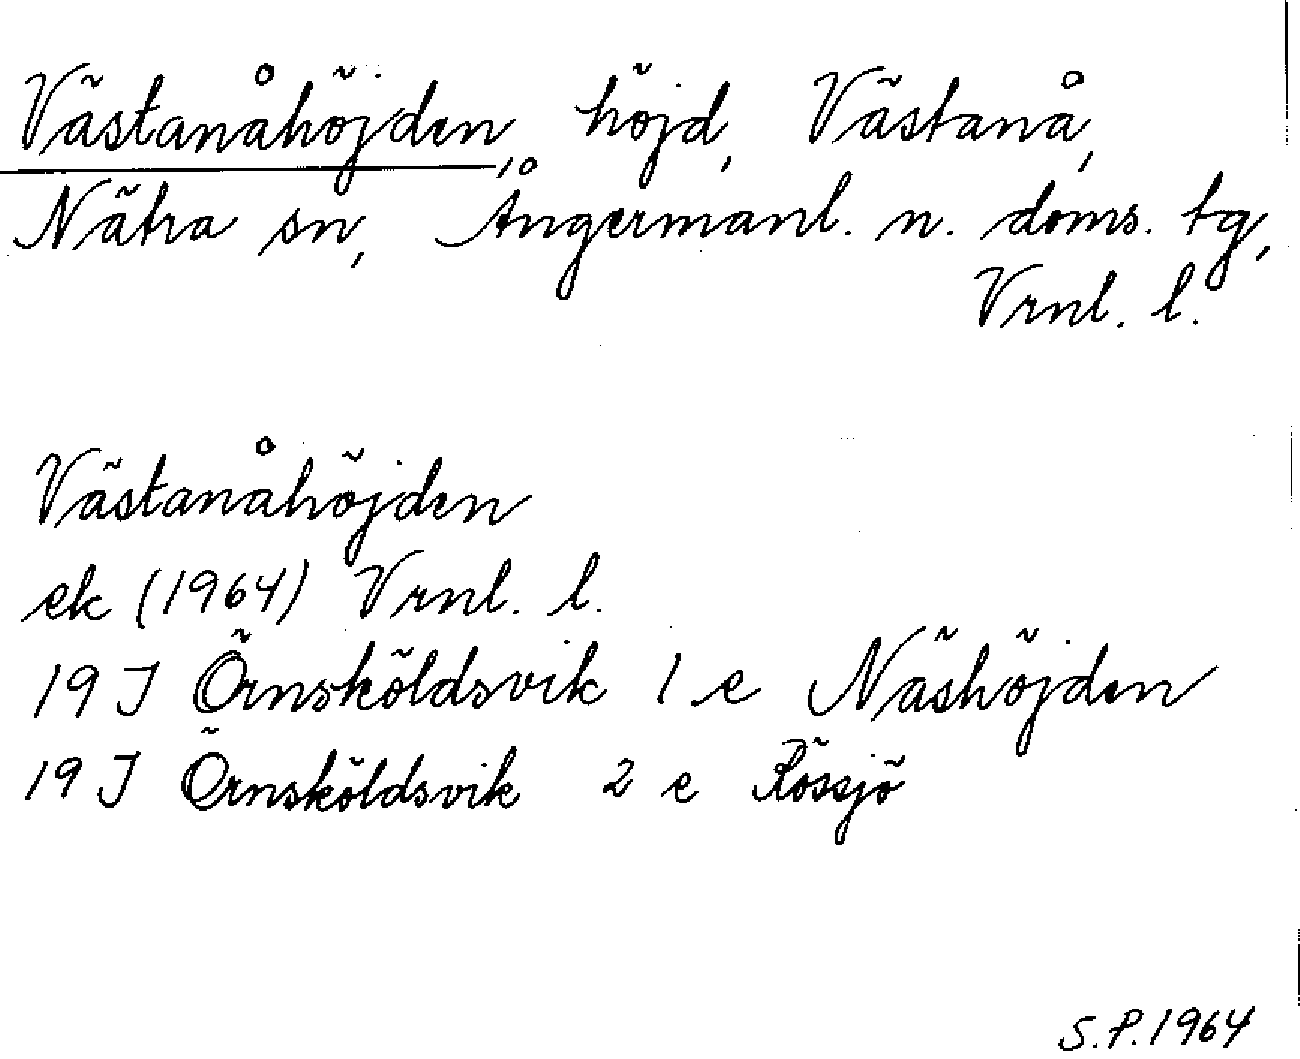 Västanåhöjden, höjd, Västanå,
Nätra sn, Ångermanl. n. doms. tg,
Vrnl. l.
Västanåhöjden
ek (1964) Vrnl. l.
19 J Örnsköldsvik 1 e Näshöjden
19 J Örnsköldsvik 2 e Rössjö
S.P. 1964